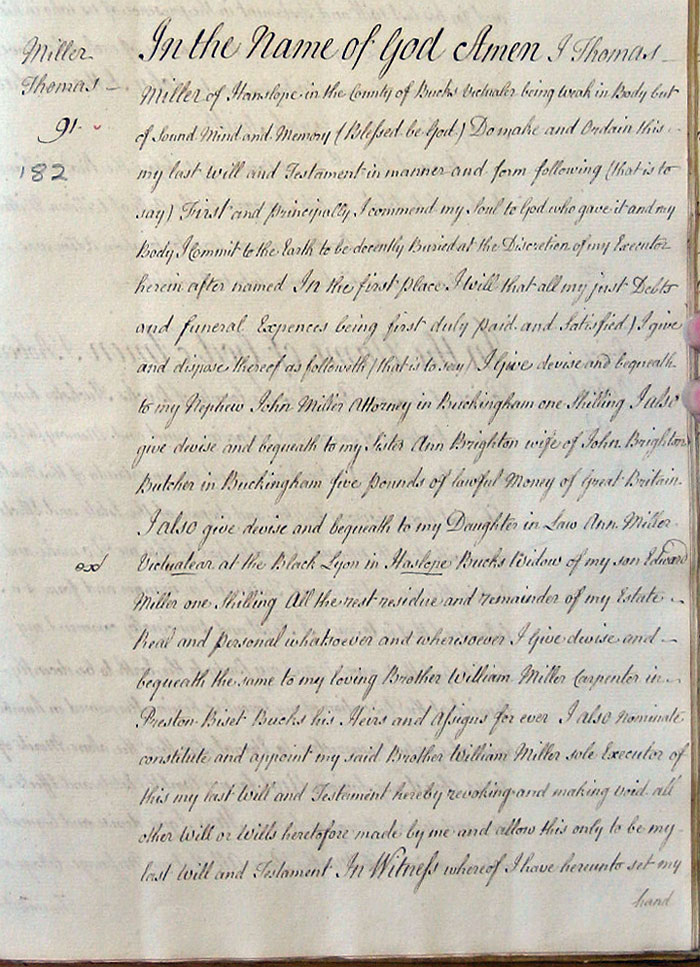 Miller
Thomas
91.
182
In the Name of God Amen I Thomas
Miller of Hanslope in the County of Bucks Victualer being weak in Body but
of Sound Mind and Memory (Blessed be God) Do make and Ordain this
my last Will and Testament in manner and form following (that is to
say) First and principally I commend my Soul to God who gave it and my
Body I Commit to the Earth to be decently Buried at the Discretion of my Executor
herein after named In the first place I will that all my just Debts
and funeral Expences being first duly paid and Satisfied) I give
and dispose thereof as followeth (that is to say) I Give devise and bequeath
to my Nephew John Miller Attorney in Buckingham one Shilling I also
give devise and bequeath to my Sister Ann Brighton wife of John Brighton
Butcher in Buckingham five pounds of lawful Money of Great Britain
I also give devise and bequeath to my Daughter in Law Ann Miller
exd
Victualear at the Black Lyon in Haslope Bucks Widow of my son Edward
Miller one Shilling All the rest residue and remainder of my Estate
Real and personal whatsoever and wheresoever I Give devise and
bequeath the same to my loving Brother William Miller Carpenter in
Preston Biset Bucks his Heirs and Assigns for ever I also Nominate
constitute and appoint my said Brother William Miller sole Executor of
this my last Will and Testament hereby revoking and making void all
other Will or Wills heretofore made by me and allow this only to be my
last Will and Testament In Witness whereof I have hereunto set my
hand